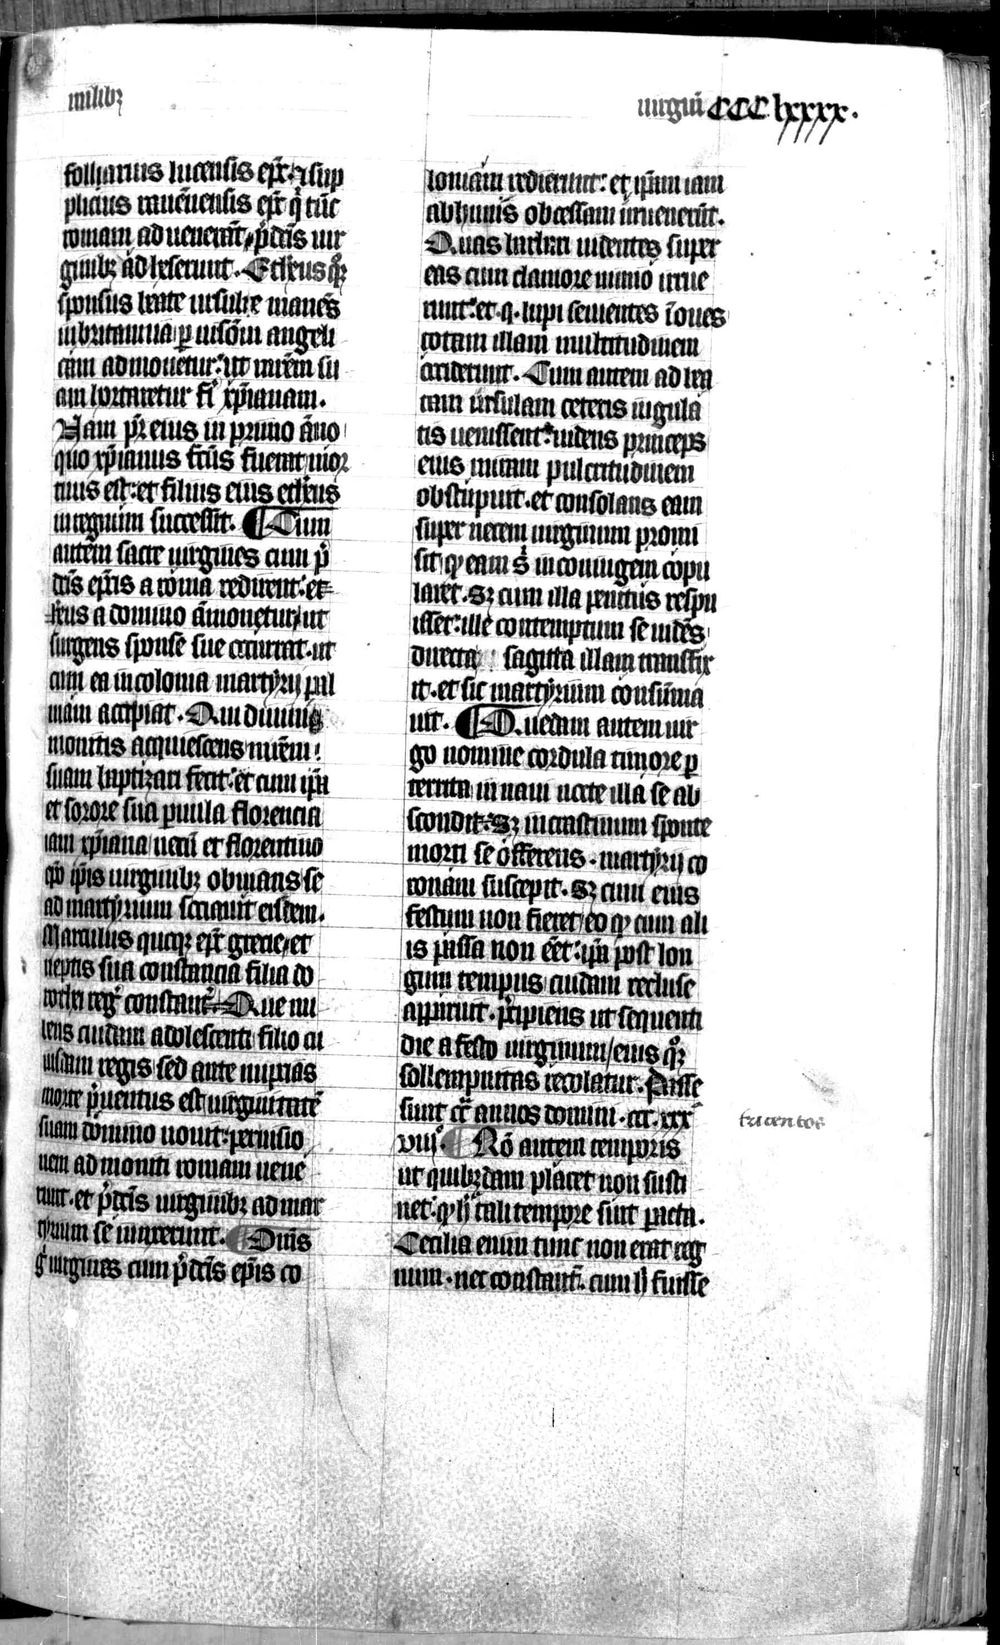 milibꝫ
uirgiũ CCC lxxxx.
follianus lucensis ep̃c ⁊ sup
plicius rauẽnensis ep̃c q̇ tũc
romam ad uenerãt p̃dc̃is uir
ginibꝫ ad heserunt. Ethereus qꝫ
sponsus beate ursule manẽs
in britannia ꝑ uisõem angeli
cam admonetur: ut mr̃em su
am hortaretur fi͛ xp̃ianam.
Nam pr̃ eius in primo ãno
quo xp̃ianus fc̃us fuerat mor
tuus est: et filius eius ethereus
in regnum successit. ¶ Cum
autem sacre uirgines cum p̃
dc̃is ep̃is a roma redirent: et
hereus a domino ãmonetur ut
surgens sponse sue occurrat. ut
cum ea in colonia martyrij pal
mam accipiat. Qui diuinis
monitis acquiescens mr̃em
suam baptizari fecit: et cum ip̃a
et sorore sua ꝑuula florencia
iam xp̃iana uecũ et florentino
ep̃o ip̃is uirginibꝫ obuians se
ad martyrium sociauit eisdem.
Marculus quoqꝫ ep̃c grecie et
neptis sua constancia filia do
rothei reg̃ constant̃. Que nu
bens cuidam adolescenti filio cu
iusdam regis sed ante nuptias
morte p̃uentus est uirginitatẽ
suam domino uouit: per uisio
nem ad moniti romam uene
runt. et p̃dc̃is uirginibꝫ ad mar
tyrium se iunxerunt. ¶ Om̃s
g̃ uirgines cum p̃dc̃is ep̃is co
loniam redierunt: et ip̃am iam
ab hunis obcessam inuenerũt.
Quas barbari uidentes super
eas cum clamore nimio irrue
runt: et. q. lupi seuientes ĩ oues
totam illam multitudinem
occiderunt. Cum autem ad bea
tam ursulam ceteris iugula
tis uenissent: uidens princeps
eius miram pulcritudinem
obstupuit. et consolans eam
super necem uirginum promi
sit qꝫ eam s̃ in coniugem copu
laret. Sꝫ cum illa penitus respu
isset: ille contemptum se uidẽs
directa sagitta illam transfix
it. et sic martyrium consũma
uit. ¶ Quedam autem uir
go nomine cordula timore ꝑ
territa in naui nocte illa se ab
scondit. Sꝫ in crastinum sponte
morti se offerens. martyrij co
ronam suscepit. Sꝫ cum eius
festum non fieret eo qꝫ cum ali
is passa non eẽt: ip̃a post lon
gum tempus cuidam recluse
apparuit. p̃cipiens ut sequenti
die a festo uirginum eius qꝫ
sollempnitas recolatur. Passe
sunt cr̃ annos domini. ccc. xxx
viijº ¶ Rõ autem temporis
ut quibꝫdam placet non susti
net: qꝫ h̃ tali tempore sint ꝑacta.
Cecilia enim tunc non erat reg
num. nec constant̃. cum h̃ fuisse
tricentos